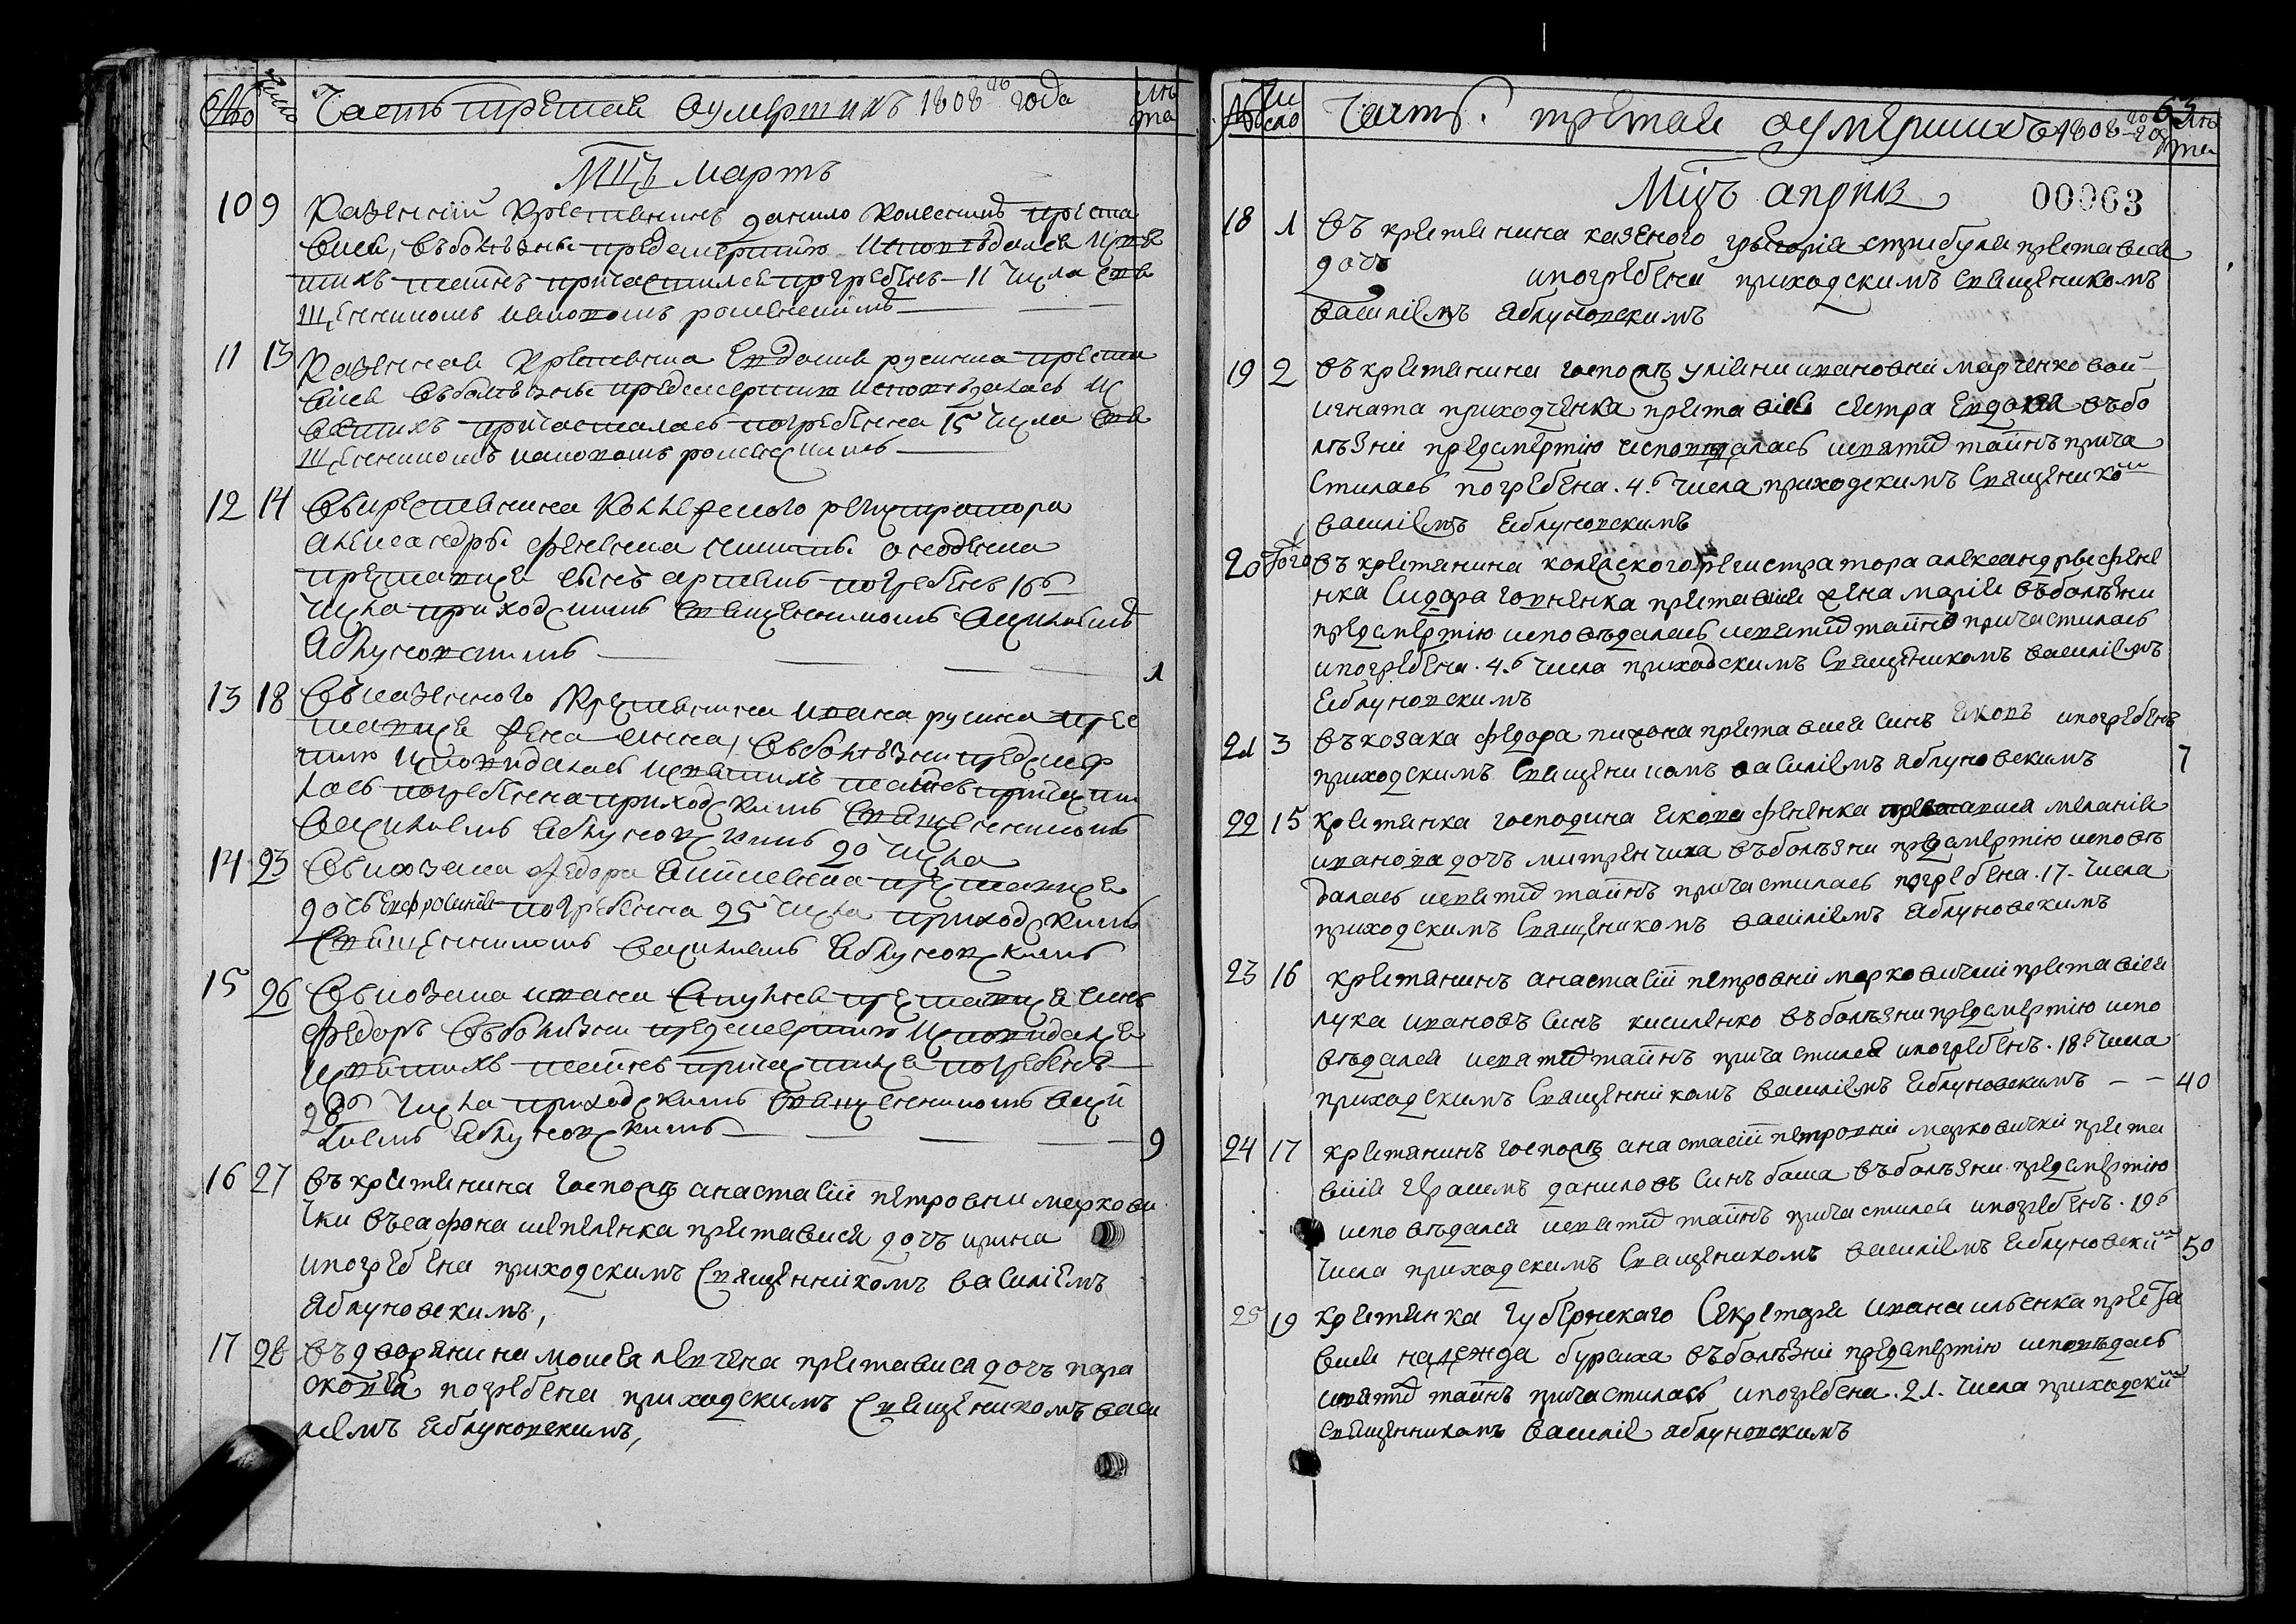 № Число Часть третая оумертихъ 1808го года лѣ
та
Мцъ мартъ
10 9 Казенній крестянинъ данило колесникъ преста
вися, въболѣзны предсмертію исповѣдался исвя
тихъ таинъ причастился погребенъ 11 числа свя
щенникомъ
11 13 Казенная крестянка Евдокия русинка преста
вися въболѣзны предсмертию исповѣдалась ис
вятихъ причасталась погребенна 15 числа свя
щенникомъ
12 14 Вькрестянина Коллеского регистратора
александры фененка
преставися сынъ артемъ погребенъ 16б
числа приходскимъ священникомъ василиемъ
Яблуновскимъ 1
13 18 Вьказенного крестянина ивана русина пре
ставися жена анна, въболѣзни предсмер
тию исповидалась исвятихъ таинъ причасти
лась погребенна приходскимъ священникомъ
василиемъ Яблуновскимъ 20 числа
14 23 Вькозака федора преставися
дочь Ефросиния погребенна 25 числа приходскимъ
священникомъ василиемъ Яблуновскимъ
15 26 Вькозака ивана преставися синъ
федоръ въболизни предсмертию исповидался
исвятихъ таинъ причастился погребенъ
28б числа приходскимъ священникомъ васи
лиемъ Яблуновскимъ 9
16 27 въкрестянина госпожѣ анастасіи петровни маркови
чки въсафона шепеленка преставися дочъ ирина
ипогребена приходскимъ священникомъ василіемъ
яблуновскимъ,
17 28 въдворянина моисея левчена преставися дочъ пара
сковея погребена приходскимъ священикомъ васи
лиемъ яблуновскимъ,
№ Чи
сло Часть. третая оумершихъ 1808го год лѣ
та
63
Мцъ априль 00063
18 1 Въ крестянина казеного григорія стрибуля преставися
дочъ ипогребена приходскимъ священикомъ
василіемъ яблуновскимъ
19 2 въкрестянина госпожѣ уляни ивановни марченковой
игната приходченка преставися сестра Евдокия въбо
лѣзни предсмертію исповѣдалась исвятид таинъ прича
стилась погребена. 4.б числа приходскимъ священико м
василіемъ яблуновскимъ
20 того въкрестянина колескогорегистратора александры фене
нка Сидора преставися жена марія въболѣзни
предсмертію исповѣдалась исвятид таинъ причастилась
ипогребена. 4.б числа приходскимъ священикомъ василіемъ
яблуновскимъ
21 3 въкозака федора пижона преставися синъ яковъ ипогребенъ
приходскимъ священикомъ василіемъ яблуновскимъ 7
22 15 крестянка господина якова фененка преставися меланія
иванова дочъ митренчиха въболѣзни предсмертію исповѣ
далась исвятид таинъ причастилась погребена. 17. числа
приходскимъ священикомъ василіемъ яблуновскимъ
23 16 крестянинъ анастасіи петровни марковички преставися
лука ивановъ синъ кисиленко въболѣзни предсмертію испо
вѣдался исвятид таинъ причастился ипогребенъ. 18б числа
приходскимъ священникомъ василіемъ яблуновскимъ 40
24 17 крестянинъ госпожѣ анастасіи петровни марковички преста
вися герасимъ даниловъ синъ баша въболѣзни предсмертію
исповѣдался исвятид таинъ причастился ипогребенъ. 19б
числа приходскимъ священикомъ василіемъ яблуновски м 50
25 19 крестянка губернскаго Секретаря ивана ильенка преста
вися надежда бураха въболѣзни предсмертію исповѣдась
исвятид таинъ причастилась ипогребена. 21. числа приходски м
священникомъ василіе яблуновскимъ